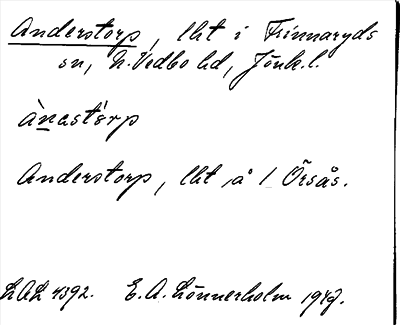 Anderstorp, lht i Frinnaryds
sn, N. Vedbo hd, Jönk. l.
ànastɜ́rp
Anderstorp, lht å 1 Örsås.
LAL 4392. E. A. Lönnerholm 1947.